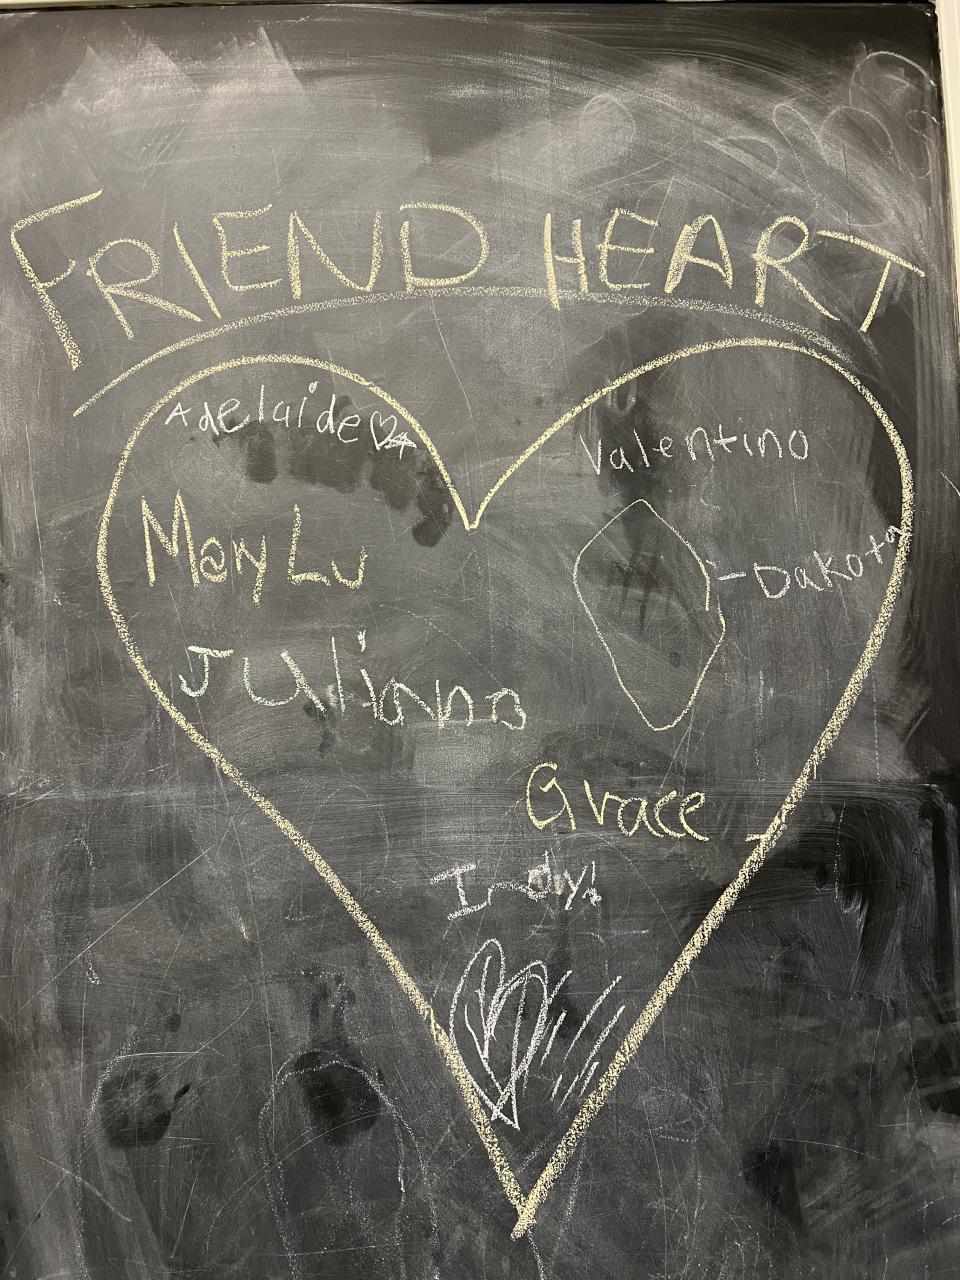 FRIEND HEART
Adelaide
Valentino
Mary Lu
-Dakota
Juliana
Grace
Indy!